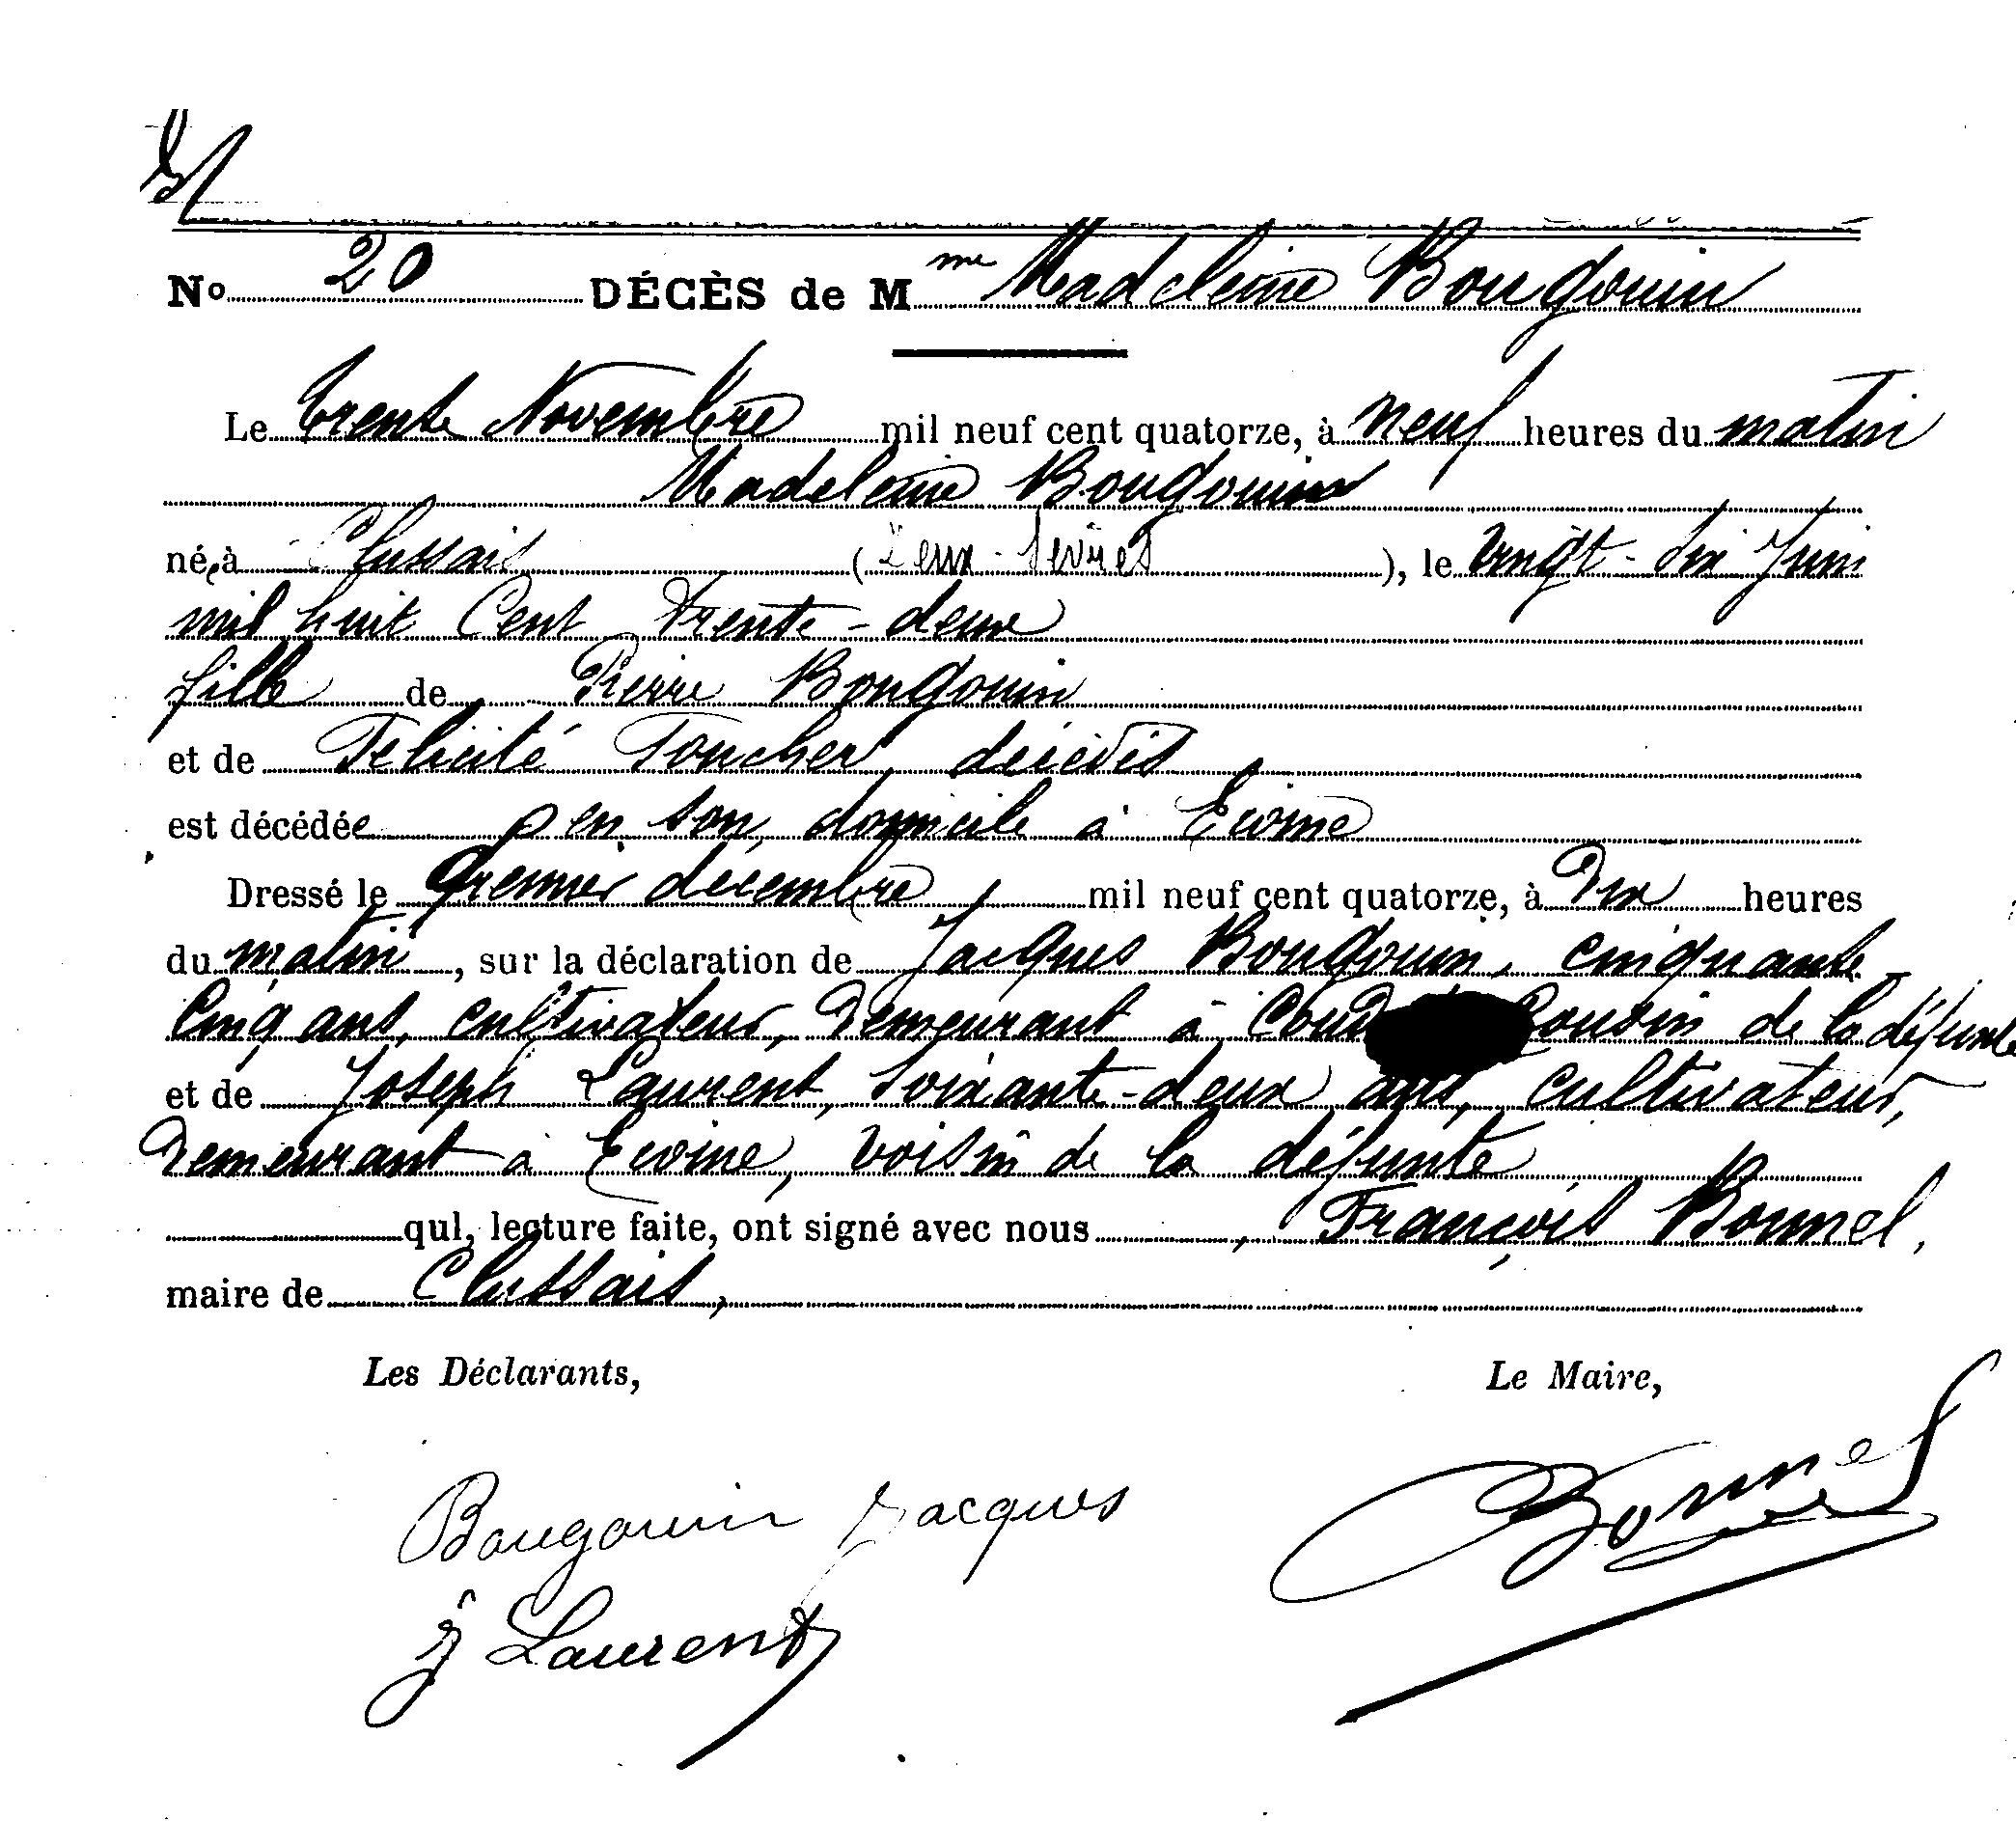 N° 20 DÉCÈS de Mme Madeleine Bougouin
Le trente Novembre mil neuf cent quatorze, à neuf heures du matin
Madeleine Bougouin
née à Clussais (Deux-Sèvres), le vingt-six Juin
mil huit Cent trente-deux
fille de Pierre Bougouin
et de Félicité Foucher, décédés,
est décédée en son domicile à Ecoine
Dressé le premier décembre mil neuf cent quatorze, à Dix heures
du matin, sur la déclaration de Jacques Bougouin, cinquante
cinq ans, cultivateur, demeurant à Cousin de la défunte
et de Joseph Laurent, soixante-deux ans, cultivateur,
demeurant à Ecoine, voisin de la défunte
qui, lecture faite, ont signé avec nous, François Bonnel,
maire de Clussais,
Les Déclarants, Le Maire,
Bougouin Jacques Bonnel
J Laurent